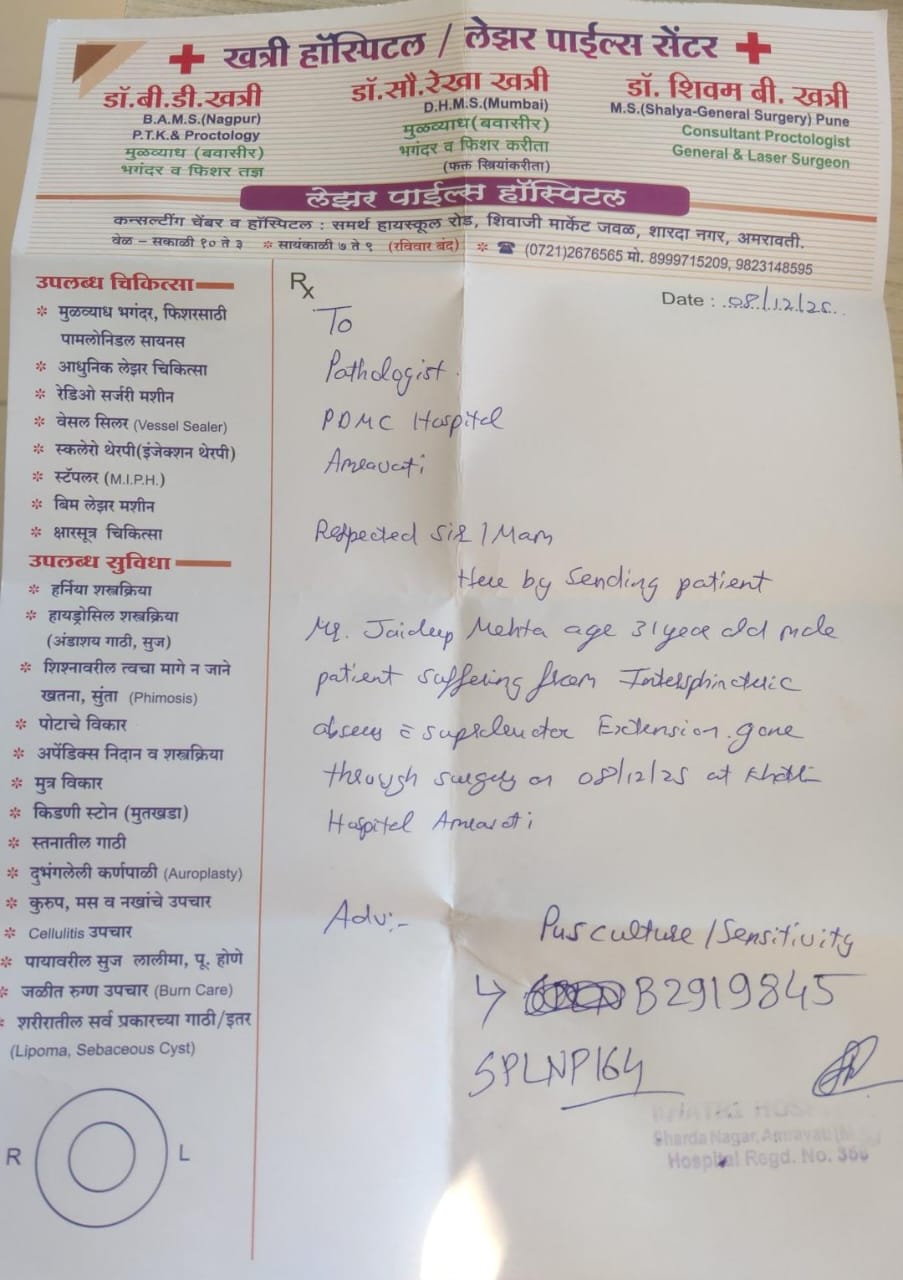 खत्री हॉस्पिटल / लेझर पाईल्स सेंटर
डॉ.बी.डी.खत्री
B.A.M.S.(Nagpur)
P.T.K.& Proctology
मुळव्याध (बवासीर)
भगंदर व फिशर तज्ञ
डॉ.सौ.रेखा खत्री
D.H.M.S.(Mumbai)
मुळव्याध(बवासीर)
भगंदर व फिशर करीता
(फक्त स्त्रियांकरीता)
डॉ. शिवम बी. खत्री
M.S.(Shalya-General Surgery) Pune
Consultant Proctologist
General & Laser Surgeon
लेझर पाईल्स हॉस्पिटल
कन्सल्टींग चेंबर व हॉस्पिटल : समर्थ हायस्कूल रोड, शिवाजी मार्केट जवळ, शारदा नगर, अमरावती.
वेळ – सकाळी १० ते ३ * सायंकाळी ७ ते ९ (रविवार बंद) * ☎ (0721)2676565 मो. 8999715209, 9823148595
उपलब्ध चिकित्सा
* मुळव्याध भगंदर, फिशरसाठी
पामलोनिडल सायनस
* आधुनिक लेझर चिकित्सा
* रेडिओ सर्जरी मशीन
* वेसल सिलर (Vessel Sealer)
* स्कलेरो थेरपी(इंजेक्शन थेरपी)
* स्टॅपलर (M.I.P.H.)
* बिम लेझर मशीन
* क्षारसूत्र चिकित्सा
उपलब्ध सुविधा
* हर्निया शस्त्रक्रिया
* हायड्रोसिल शस्त्रक्रिया
(अंडाशय गाठी, सुज)
* शिश्नावरील त्वचा मागे न जाने
खतना, सुंता (Phimosis)
* पोटाचे विकार
* अपेंडिक्स निदान व शस्त्रक्रिया
* मुत्र विकार
* किडणी स्टोन (मुतखडा)
* स्तनातील गाठी
* दुभंगलेली कर्णपाळी (Auroplasty)
* कुरुप, मस व नखांचे उपचार
* Cellulitis उपचार
* पायावरील सुज लालीमा, पू. होणे
* जळीत रुग्ण उपचार (Burn Care)
* शरीरातील सर्व प्रकारच्या गाठी/इतर
(Lipoma, Sebaceous Cyst)
R L
Rx
Date : 08/12/25
To
Pathologist.
PDMC Hospital
Amravati
Respected Sir / Mam
Here by Sending patient
Mr. Jaideep Mehta age 31 year old male
patient suffering from Intersphincteric
abscess c̄ supralevator Extension. gone
through surgery on 08/12/25 at Khatri
Hospital Amravati
Adv:- Pus culture / Sensitivity
↳ B2919845
SPLNP164
KHATRI HOSPITAL
Sharda Nagar, Amravati
Hospital Regd. No. 366